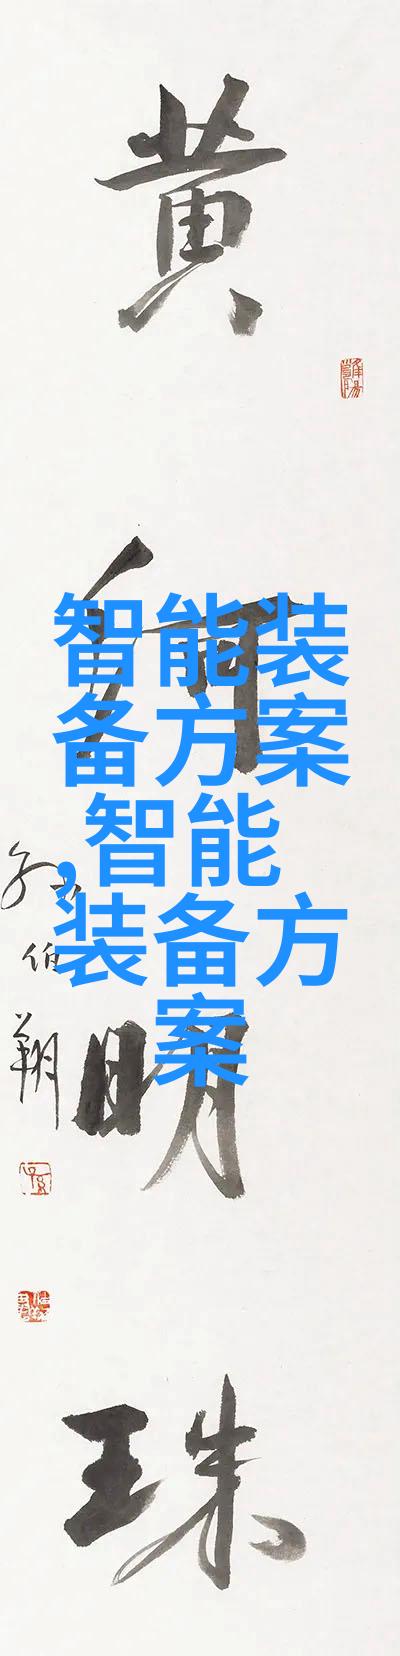 黄
河
明
珠
孙伯翔
智能装
备方案
,智能
装备方
案